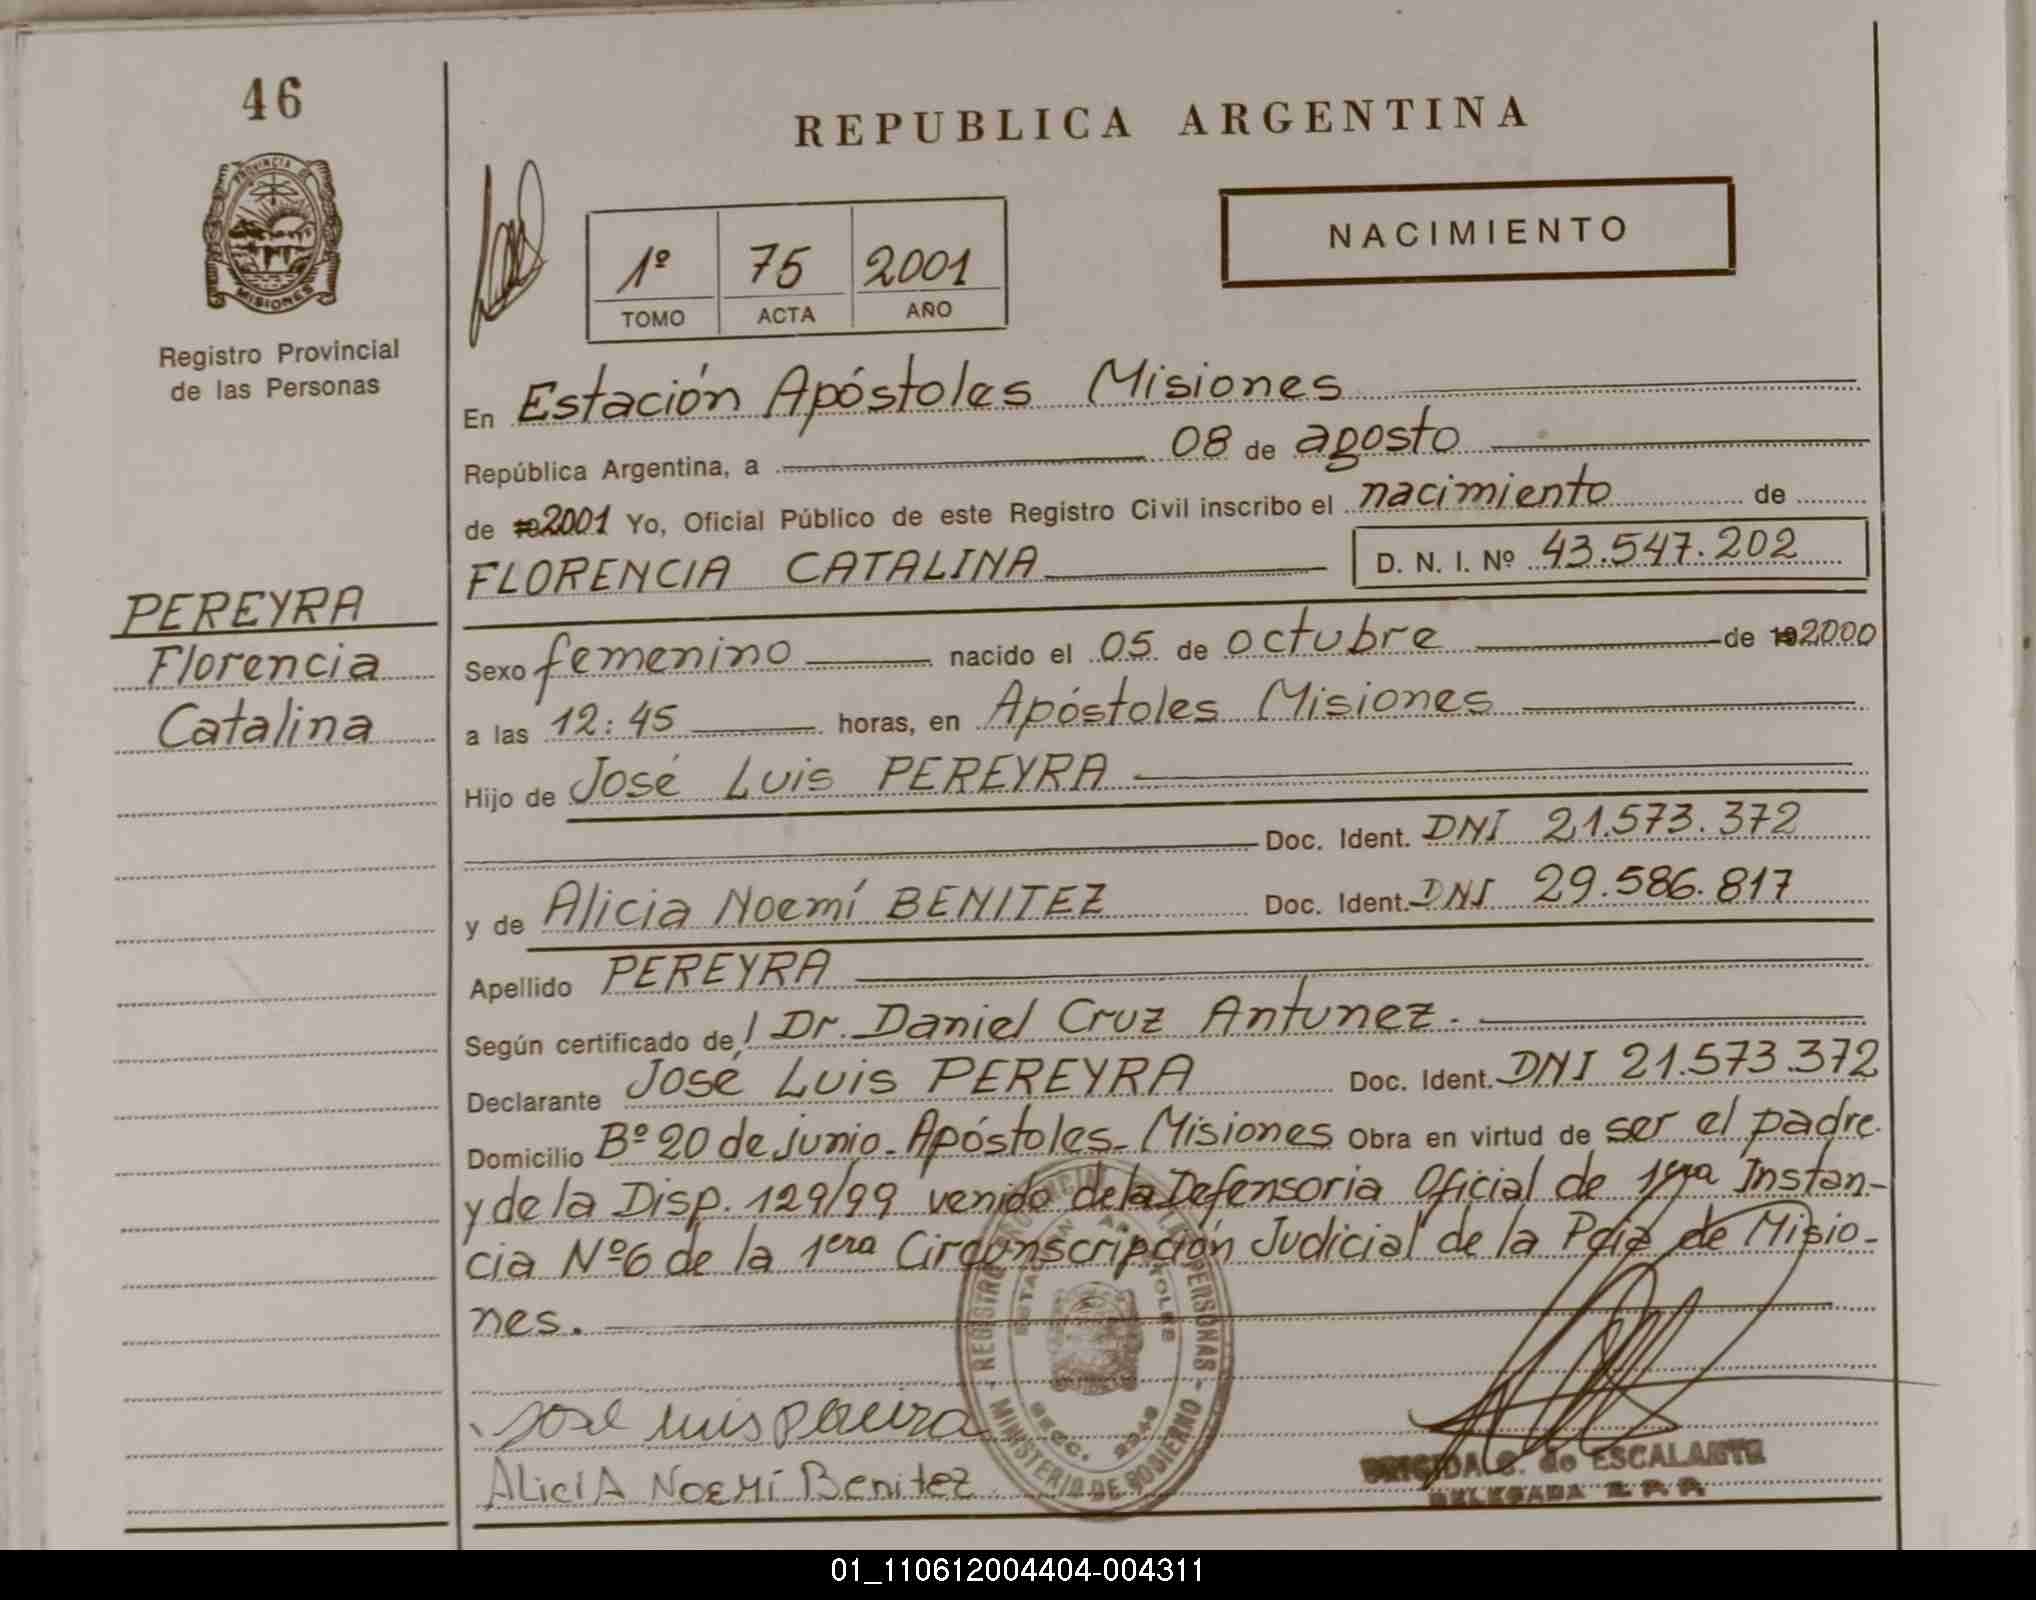 46
PROVINCIA DE
MISIONES
Registro Provincial
de las Personas
PEREYRA
Florencia
Catalina
REPUBLICA ARGENTINA
NACIMIENTO
1º 75 2001
TOMO ACTA AÑO
En Estación Apóstoles Misiones
República Argentina, a 08 de agosto
de 19 2001 Yo, Oficial Público de este Registro Civil inscribo el nacimiento de
FLORENCIA CATALINA D. N. I. Nº 43.547.202
Sexo femenino nacido el 05 de octubre de 19 2000
a las 12:45 horas, en Apóstoles Misiones
Hijo de José Luis PEREYRA
Doc. Ident. DNI 21.573.372
y de Alicia Noemí BENITEZ Doc. Ident. DNI 29.586.817
Apellido PEREYRA
Según certificado de/ Dr. Daniel Cruz Antunez.
Declarante José Luis PEREYRA Doc. Ident. DNI 21.573.372
Domicilio Bº 20 de junio. Apóstoles. Misiones Obra en virtud de ser el padre
y de la Disp. 129/99 venido de la Defensoria Oficial de 1era Instan-
cia Nº6 de la 1era Circunscripción Judicial de la Pcia de Misio-
nes.
REGISTRO PROVINCIAL DE LAS PERSONAS
ESTACION APOSTOLES
SECC.
MINISTERIO DE GOBIERNO
Jose luis Pereira
AlicIA NoEMí Benitez
BRIGIDA G. de ESCALANTE
DELEGADA R.P.P.
01_110612004404-004311